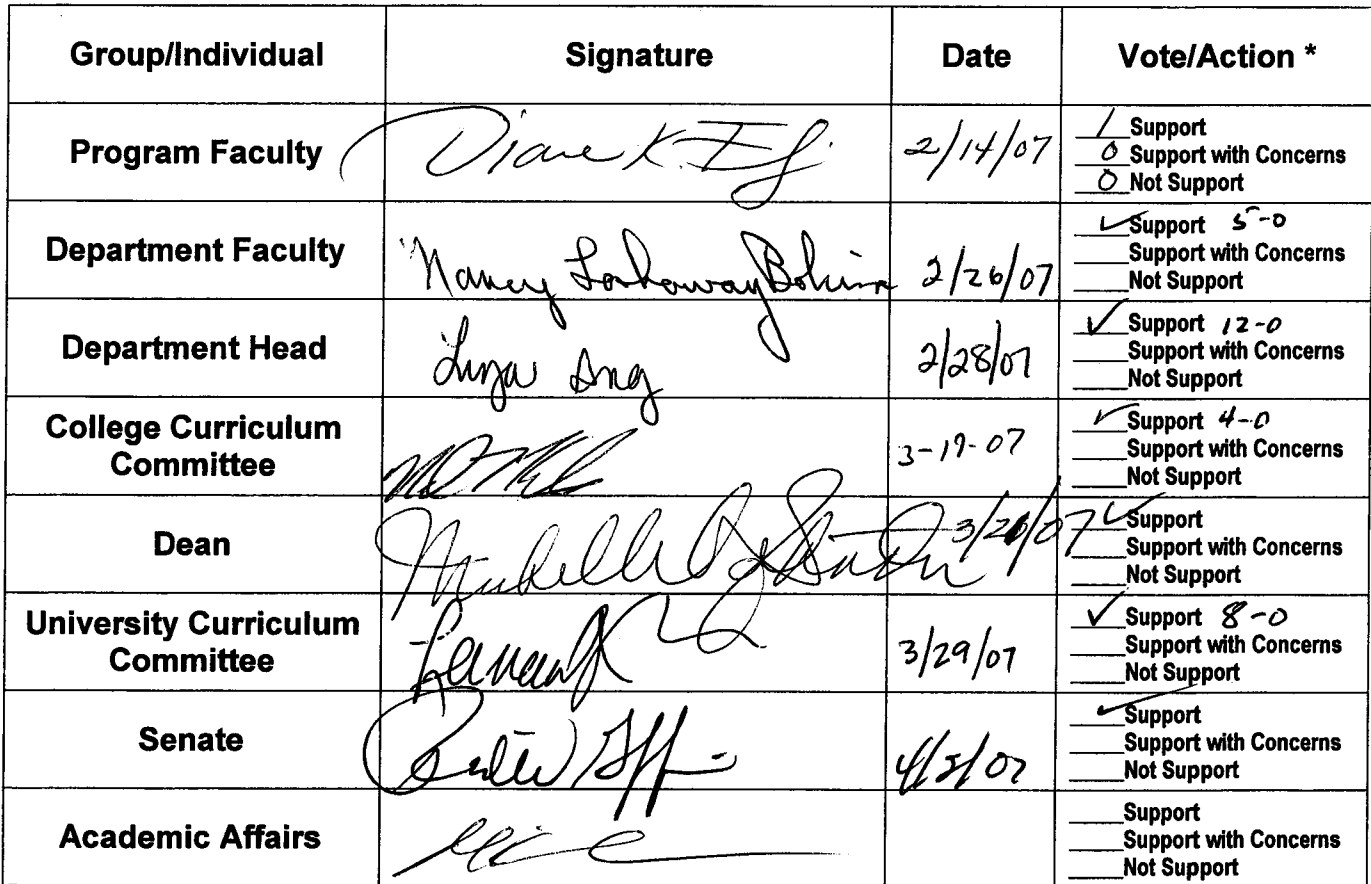 Group/Individual Signature Date Vote/Action *
Program Faculty Diane K. 2/14/07
/ Support
0 Support with Concerns
0 Not Support
Department Faculty Nancy 2/26/07
✓ Support 5-0
____Support with Concerns
____Not Support
Department Head 2/28/07
✓ Support 12-0
____Support with Concerns
____Not Support
College Curriculum
Committee
3-19-07
✓ Support 4-0
____Support with Concerns
____Not Support
Dean Michelle
✓ Support
____Support with Concerns
____Not Support
University Curriculum
Committee
3/29/07
✓ Support 8-0
____Support with Concerns
____Not Support
Senate
✓ Support
____Support with Concerns
____Not Support
Academic Affairs
____Support
____Support with Concerns
____Not Support